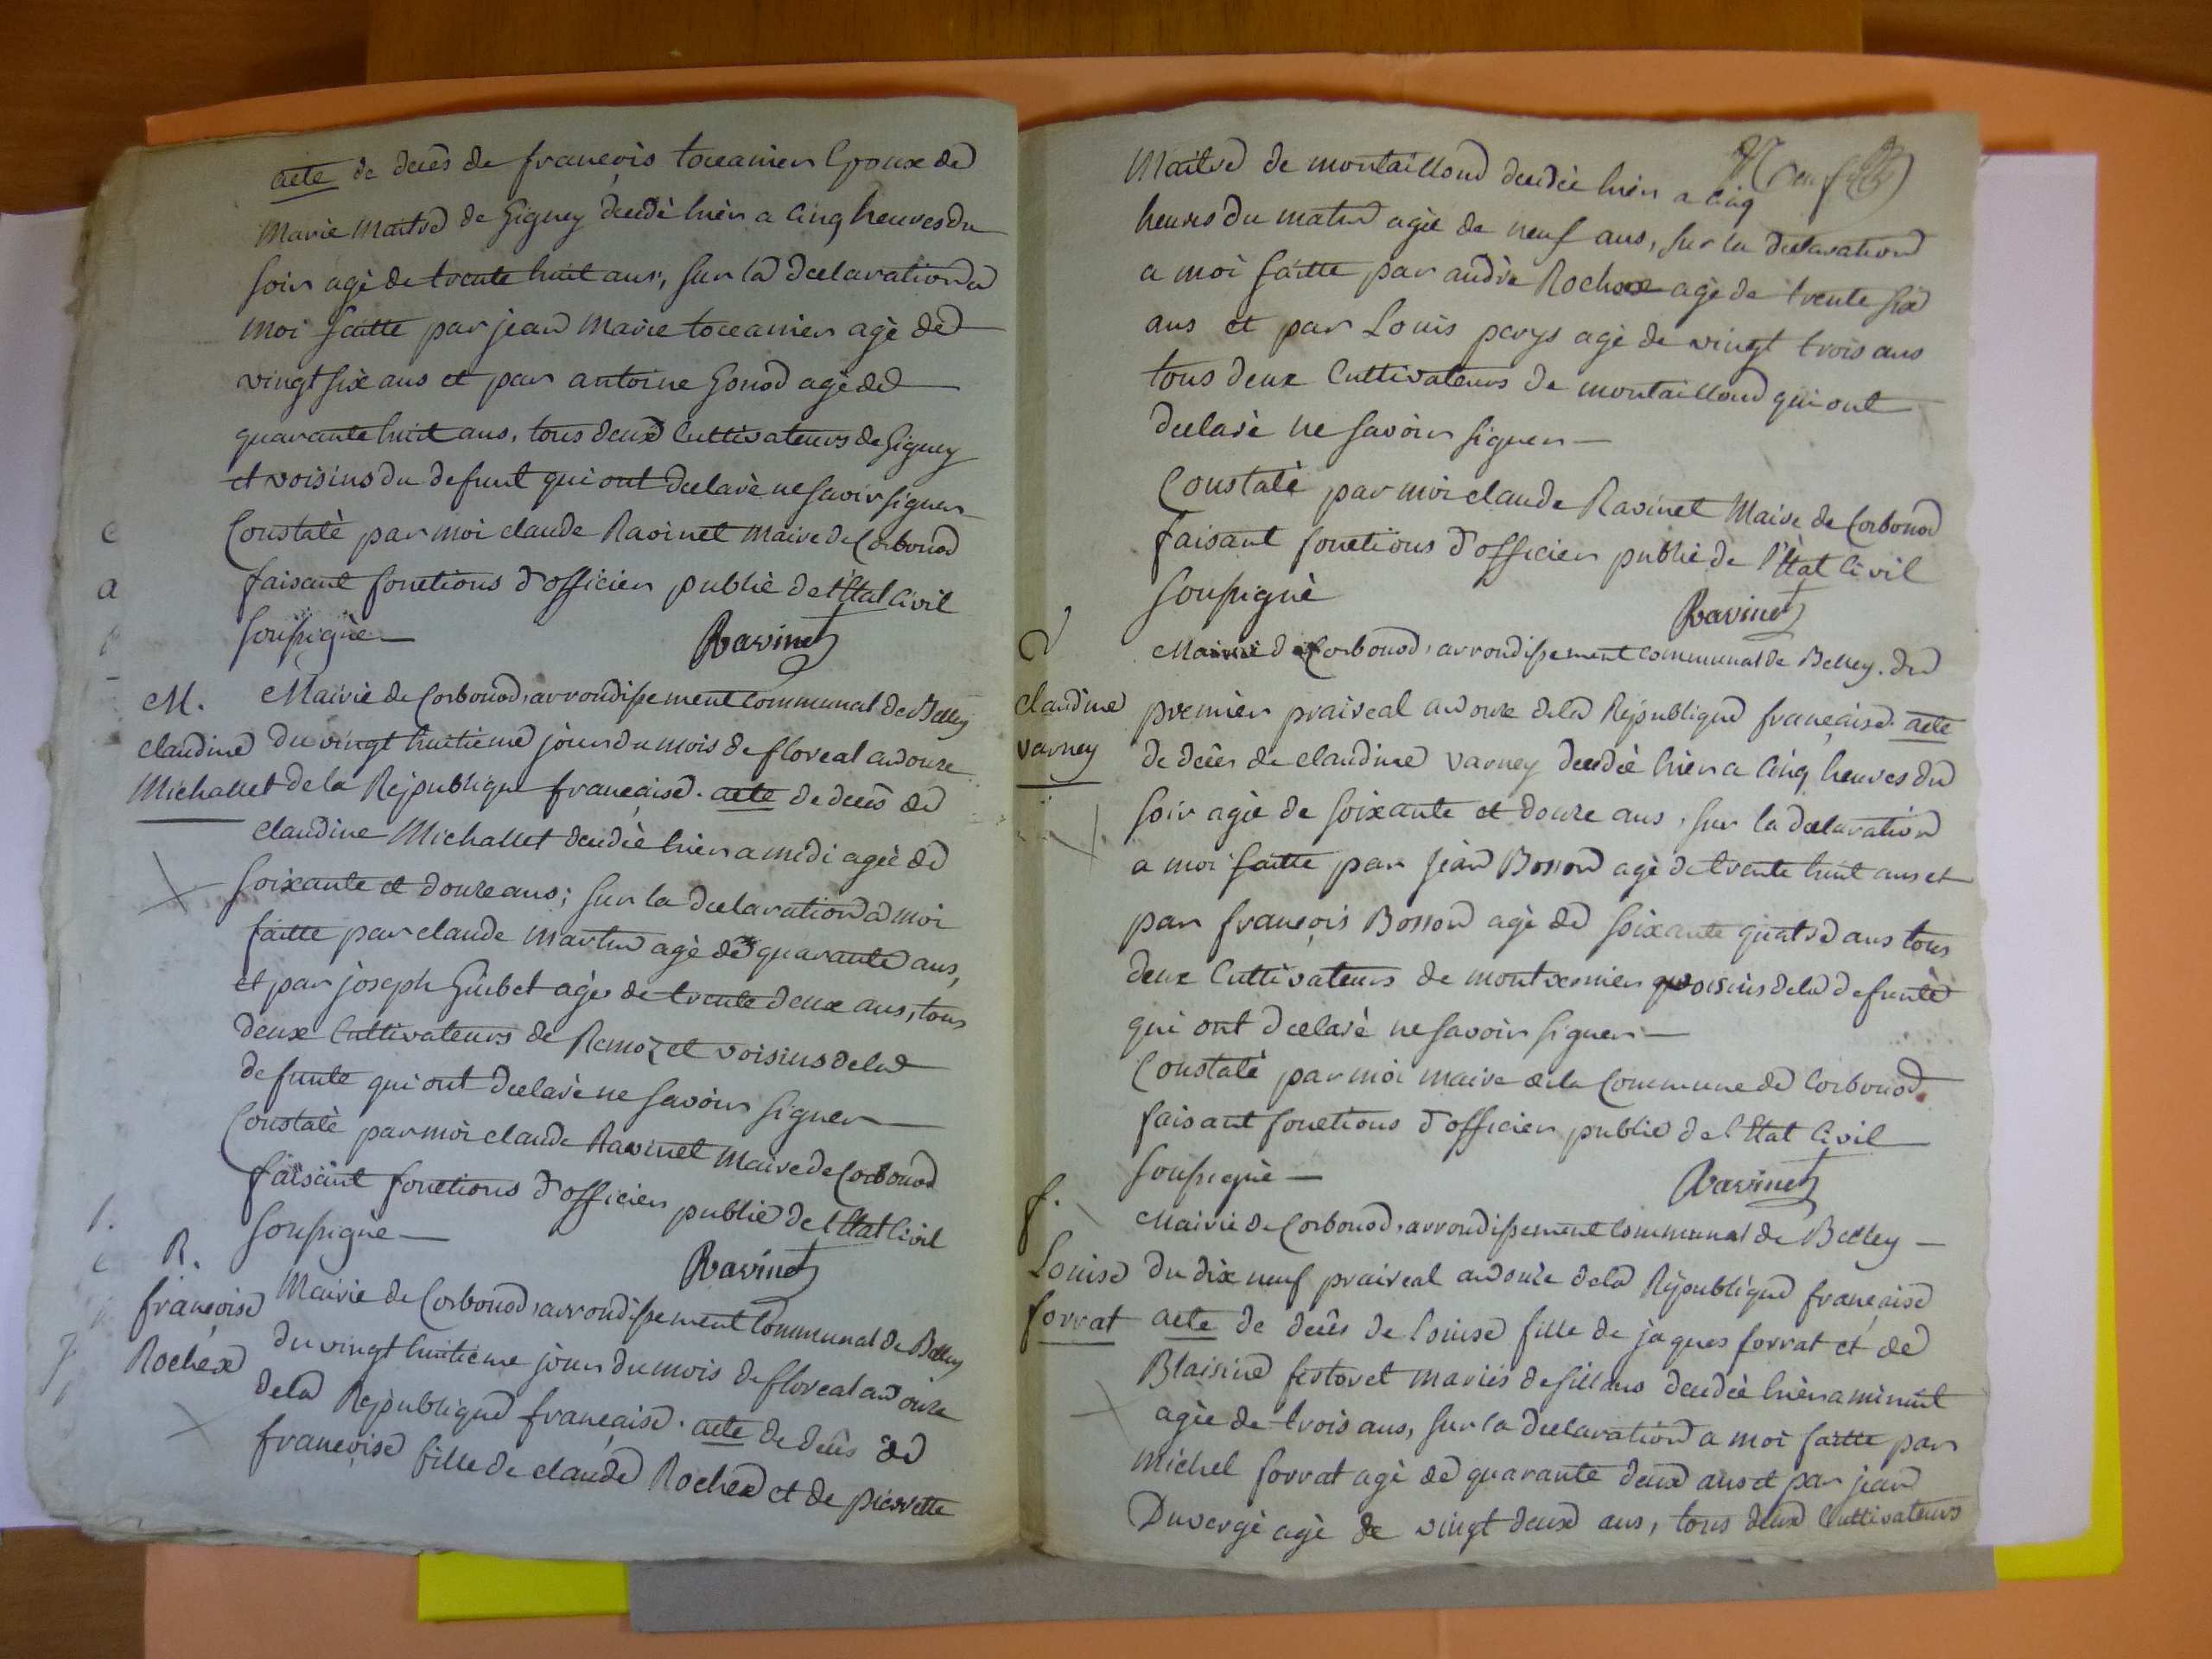 acte de decès de francois toccanier Epoux de
Marie Maitre de Gigney decedè hièr a Cinq heures du
soir agè de trente huit ans, sur la declaration a
moi faitte par jean Marie toccanier agè de
vingt six ans et par antoine Gonod agè de
quarante huit ans, tous deux Cultivateurs de Gigney
et voisins du defunt qui ont declarè ne savoir signer
Constatè par moi claude Ravinet Maire de Corbonod
faisant fonctions d'officier public de l'Etat Civil
soussignè
Ravinet
M.
claudine
Michallet
Mairie de Corbonod, arrondissement Communal de Belley
du vingt huitieme jour du mois de floreal an onze
de la Republique française. acte de decès de
claudine Michallet decedèe hièr a midi agèe de
soixante et douze ans; sur la declaration a moi
faitte par claude Martin agè de quarante ans,
et par joseph Guibet agés de trente deux ans, tous
deux Cultivateurs de Remoz et voisins de la
defunte qui ont declarè ne savoir signer
Constatè par moi claude Ravinet Maire de Corbonod
faisant fonctions d'officier public de l'Etat Civil
soussignè
Ravinet
R.
françoise
Rochex
Mairie de Corbonod, arrondissement Communal de Belley
du vingt huitieme jour du mois de floreal an onze
de la Republique française. acte de decès de
françoise fille de claude Rochex et de pierrette
Maitre de montailloud decedèe hièr a cinq
heures du matin agèe de neuf ans, sur la declaration
a moi faitte par andrè Rochex agè de trente six
ans et par Louis perys agè de vingt trois ans
tous deux Cultivateurs de montailloud qui ont
declarè ne savoir signer
Constatè par moi claude Ravinet Maire de Corbonod
faisant fonctions d'officier public de l'Etat Civil
soussignè
Ravinet
V
claudine
varney
Mairie de Corbonod, arrondissement communal de Belley. du
premier praireal an onze de la Republique française. acte
de decès de claudine varney decedèe hièr a Cinq heures du
soir agèe de soixante et douze ans, sur la declaration
a moi faitte par jean Bosson agè de trente huit ans et
par françois Bosson agè de soixante quatre ans tous
deux Cultivateurs de montvernier voisins de la defunte
qui ont declarè ne savoir signer
Constatè par moi maire de la Commune de Corbonod
faisant fonctions d'officier public de l'Etat Civil
soussignè
Ravinet
f.
Louise
forrat
Mairie de Corbonod, arrondissement Communal de Belley
du dix neuf praireal an onze de la Republique française
acte de decès de Louise fille de jaques forrat et de
Blaisine fertoret mariés de sillans decedèe hièr a minuit
agèe de trois ans, sur la declaration a moi faitte par
Michel forrat agè de quarante deux ans et par jean
Duvergè agè de vingt deux ans, tous deux Cultivateurs